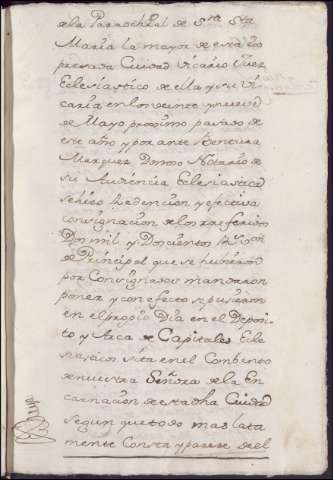 de la Parrochial de S.ra Sta
Maria la mayor de esta
presada Ciudad Vicario Juez
Eclesiastico de ella y su Vi
caria en los veinte y nueve
de Mayo proximo pasado de
este año y por ante Bentura
Marquez Donoso Notario de
su Audiencia Eclesiastica
se hizo Redencion y efectiva
consignacion de los referidos
Dos mil y Doscientos R.s von
de Principal que se hubieron
por Consignados mandaron
poner y con efecto se pusieron
en el propio Dia en el Deposi
to y Arca de Capitales Ecle
siasticos sita en el Combento
de nuestra Señora de la En
carnacion de esta dha Ciudad
segun que todo mas lata
mente Consta y parece del